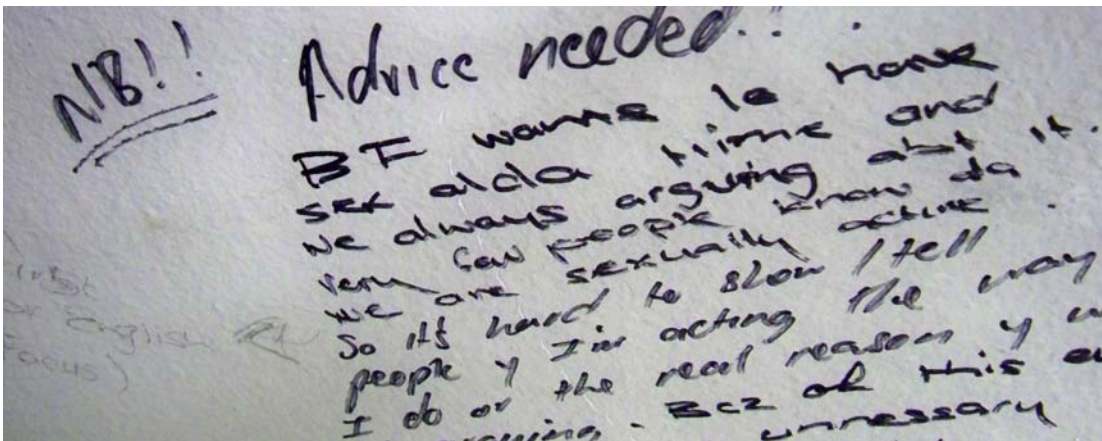 NB!!
Advice needed!!
BF wants to have
sex alda time and
we always arguing abt it.
very few people know da
we are sexually active.
So it's hard to show / tell
people y I'm acting the way
I do or the real reason y w
Bcz of this
unnessary
or English
Focus)